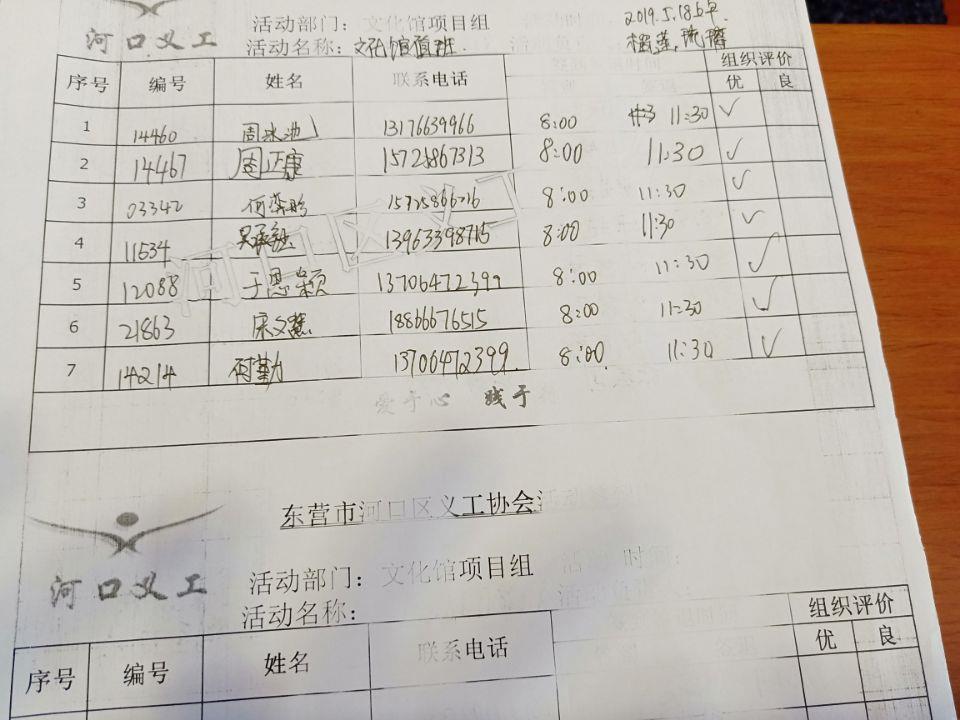 河口义工
活动部门：文化馆项目组
2019.5.18上午
活动名称：文化馆值班
序号 编号 姓名 联系电话 组织评价
优 良
1 14460 周冰池 13176639966 8:00 11:30 ✓
2 14467 周正康 15725867313 8:00 11:30 ✓
3 03342 8:00 11:30 ✓
4 11534 13963398715 8:00 11:30 ✓
5 12088 于恩颖 13706472399 8:00 11:30 ✓
6 21863 宋文慧 18866676515 8:00 11:30 ✓
7 14214 何勤 13706472399 8:00 11:30 ✓
河口区义工
爱于心 践于
东营市河口区义工协会活动
河口义工
活动部门：文化馆项目组
活动名称：
序号 编号 姓名 联系电话 组织评价
优 良